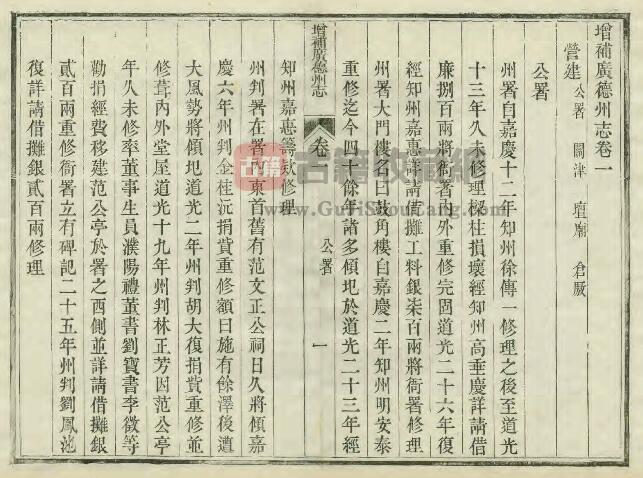 增補廣德州志卷一
營建 公署 關津 壇廟 倉廒
公署
州署自嘉慶十二年知州徐傳一修理之後至道光
十三年久未修理椽柱損壞經知州高垂慶詳請借
廉捌百兩將衙署內外重修完固道光二十六年復
經知州嘉惠詳請借攤工料銀柒百兩將衙署修理
州署大門樓名曰鼓角樓自嘉慶二年知州明安泰
重修迄今四十餘年諸多傾圮於道光二十三年經
增補廣德州志 卷一 公署 一
知州嘉惠籌款修理
州判署在署內東首舊有范文正公祠日久將傾嘉
慶六年州判金桂沅捐貲重修額曰施有餘澤後遭
大風勢將傾圮道光二年州判胡大復捐貲重修並
修葺內外堂屋道光十九年州判林正芳因范公亭
年久未修率董事生員濮陽禮董書劉寶書李徵等
勸捐經費移建范公亭於署之西側並詳請借攤銀
貳百兩重修衙署立有碑記二十五年州判劉鳳池
復詳請借攤銀貳百兩修理
古籍
www.GuJiShouCang.com